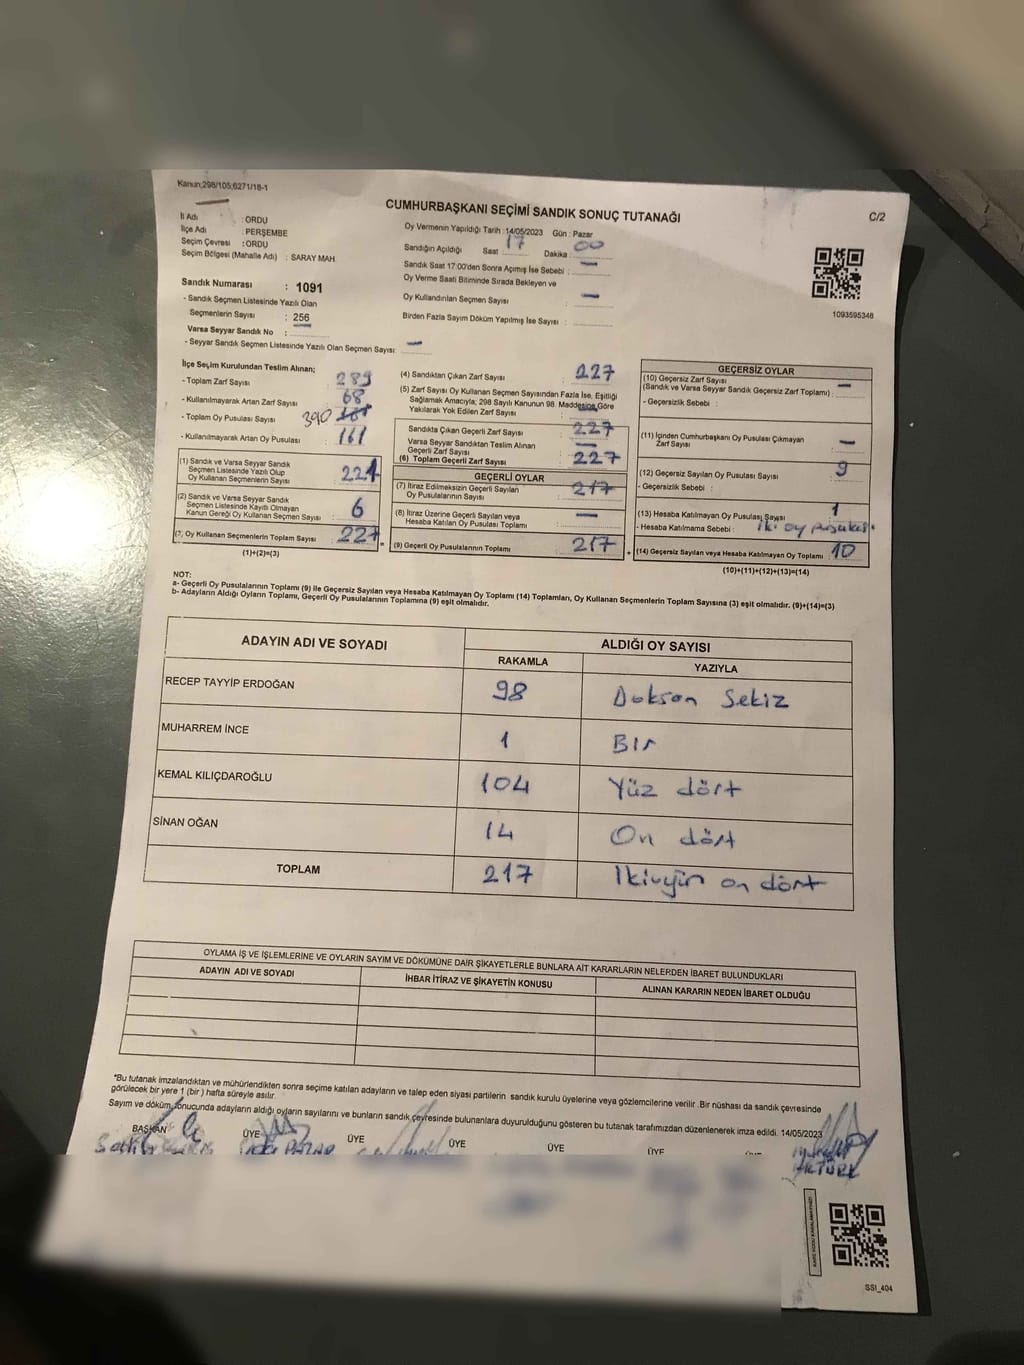 Kanun;298/105,6271/18-1
CUMHURBAŞKANI SEÇİMİ SANDIK SONUÇ TUTANAĞI
C/2
İl Adı : ORDU
İlçe Adı : PERŞEMBE
Seçim Çevresi : ORDU
Seçim Bölgesi (Mahalle Adı) : SARAY MAH.
Oy Vermenin Yapıldığı Tarih :14/05/2023 Gün : Pazar
Sandığın Açıldığı Saat 17 Dakika : 00
Sandık Saat 17:00'den Sonra Açımış İse Sebebi : —
Oy Verme Saati Bitiminde Sırada Bekleyen ve
Oy Kullandırılan Seçmen Sayısı : —
Birden Fazla Sayım Döküm Yapılmış İse Sayısı :
1093595348
Sandık Numarası : 1091
- Sandık Seçmen Listesinde Yazılı Olan
Seçmenlerin Sayısı : 256
Varsa Seyyar Sandık No : —
- Seyyar Sandık Seçmen Listesinde Yazılı Olan Seçmen Sayısı: —
İlçe Seçim Kurulundan Teslim Alınan;
- Toplam Zarf Sayısı : 289
- Kullanılmayarak Artan Zarf Sayısı : 68
- Toplam Oy Pusulası Sayısı : 390
- Kullanılmayarak Artan Oy Pusulası : 161
(1) Sandık ve Varsa Seyyar Sandık
Seçmen Listesinde Yazılı Olup
Oy Kullanan Seçmen Sayısı : 221
(2) Sandık ve Varsa Seyyar Sandık
Seçmen Listesinde Kayıtlı Olmayan
Kanun Gereği Oy Kullanan Seçmen Sayısı : 6
(3) Oy Kullanan Seçmenlerin Toplam Sayısı : 227
(1)+(2)=(3)
(4) Sandıktan Çıkan Zarf Sayısı : 227
(5) Zarf Sayısı Oy Kullanan Seçmen Sayısından Fazla İse, Eşitliği
Sağlamak Amacıyla; 298 Sayılı Kanunun 98. Maddesine Göre
Yakılarak Yok Edilen Zarf Sayısı : —
Sandıkta Çıkan Geçerli Zarf Sayısı : 227
Varsa Seyyar Sandıktan Teslim Alınan
Geçerli Zarf Sayısı : —
(6) Toplam Geçerli Zarf Sayısı : 227
GEÇERLİ OYLAR
(7) İtiraz Edilmeksizin Geçerli Sayılan
Oy Pusulalarının Sayısı : 217
(8) İtiraz Üzerine Geçerli Sayılan veya
Hesaba Katılan Oy Pusulası Toplamı : —
(9) Geçerli Oy Pusulalarının Toplamı : 217
GEÇERSİZ OYLAR
(10) Geçersiz Zarf Sayısı
(Sandık ve Varsa Seyyar Sandık Geçersiz Zarf Toplamı) : —
- Geçersizlik Sebebi :
(11) İçinden Cumhurbaşkanı Oy Pusulası Çıkmayan
Zarf Sayısı : —
(12) Geçersiz Sayılan Oy Pusulası Sayısı : 9
- Geçersizlik Sebebi :
(13) Hesaba Katılmayan Oy Pusulası Sayısı : 1
- Hesaba Katılmama Sebebi : iki oy pusulası
(14) Geçersiz Sayılan veya Hesaba Katılmayan Oy Toplamı : 10
(10)+(11)+(12)+(13)=(14)
NOT:
a- Geçerli Oy Pusulalarının Toplamı (9) ile Geçersiz Sayılan veya Hesaba Katılmayan Oy Toplamı (14) Toplamları, Oy Kullanan Seçmenlerin Toplam Sayısına (3) eşit olmalıdır. (9)+(14)=(3)
b- Adayların Aldığı Oyların Toplamı, Geçerli Oy Pusulalarının Toplamına (9) eşit olmalıdır.
ADAYIN ADI VE SOYADI ALDIĞI OY SAYISI
RAKAMLA YAZIYLA
RECEP TAYYİP ERDOĞAN 98 Doksan Sekiz
MUHARREM İNCE 1 Bir
KEMAL KILIÇDAROĞLU 104 Yüz dört
SİNAN OĞAN 14 On dört
TOPLAM 217 on dört
OYLAMA İŞ VE İŞLEMLERİNE VE OYLARIN SAYIM VE DÖKÜMÜNE DAİR ŞİKAYETLERLE BUNLARA AİT KARARLARIN NELERDEN İBARET BULUNDUKLARI
ADAYIN ADI VE SOYADI İHBAR İTİRAZ VE ŞİKAYETİN KONUSU ALINAN KARARIN NEDEN İBARET OLDUĞU
*Bu tutanak imzalandıktan ve mühürlendikten sonra seçime katılan adayların ve talep eden siyasi partilerin sandık kurulu üyelerine veya gözlemcilerine verilir. Bir nüshası da sandık çevresinde
görülecek bir yere 1 (bir) hafta süreyle asılır.
Sayım ve döküm sonucunda adayların aldığı oyların sayılarını ve bunların sandık çevresinde bulunanlara duyurulduğunu gösteren bu tutanak tarafımızdan düzenlenerek imza edildi. 14/05/2023
BAŞKAN ÜYE ÜYE ÜYE ÜYE ÜYE
AKTÜRK
SSI_404